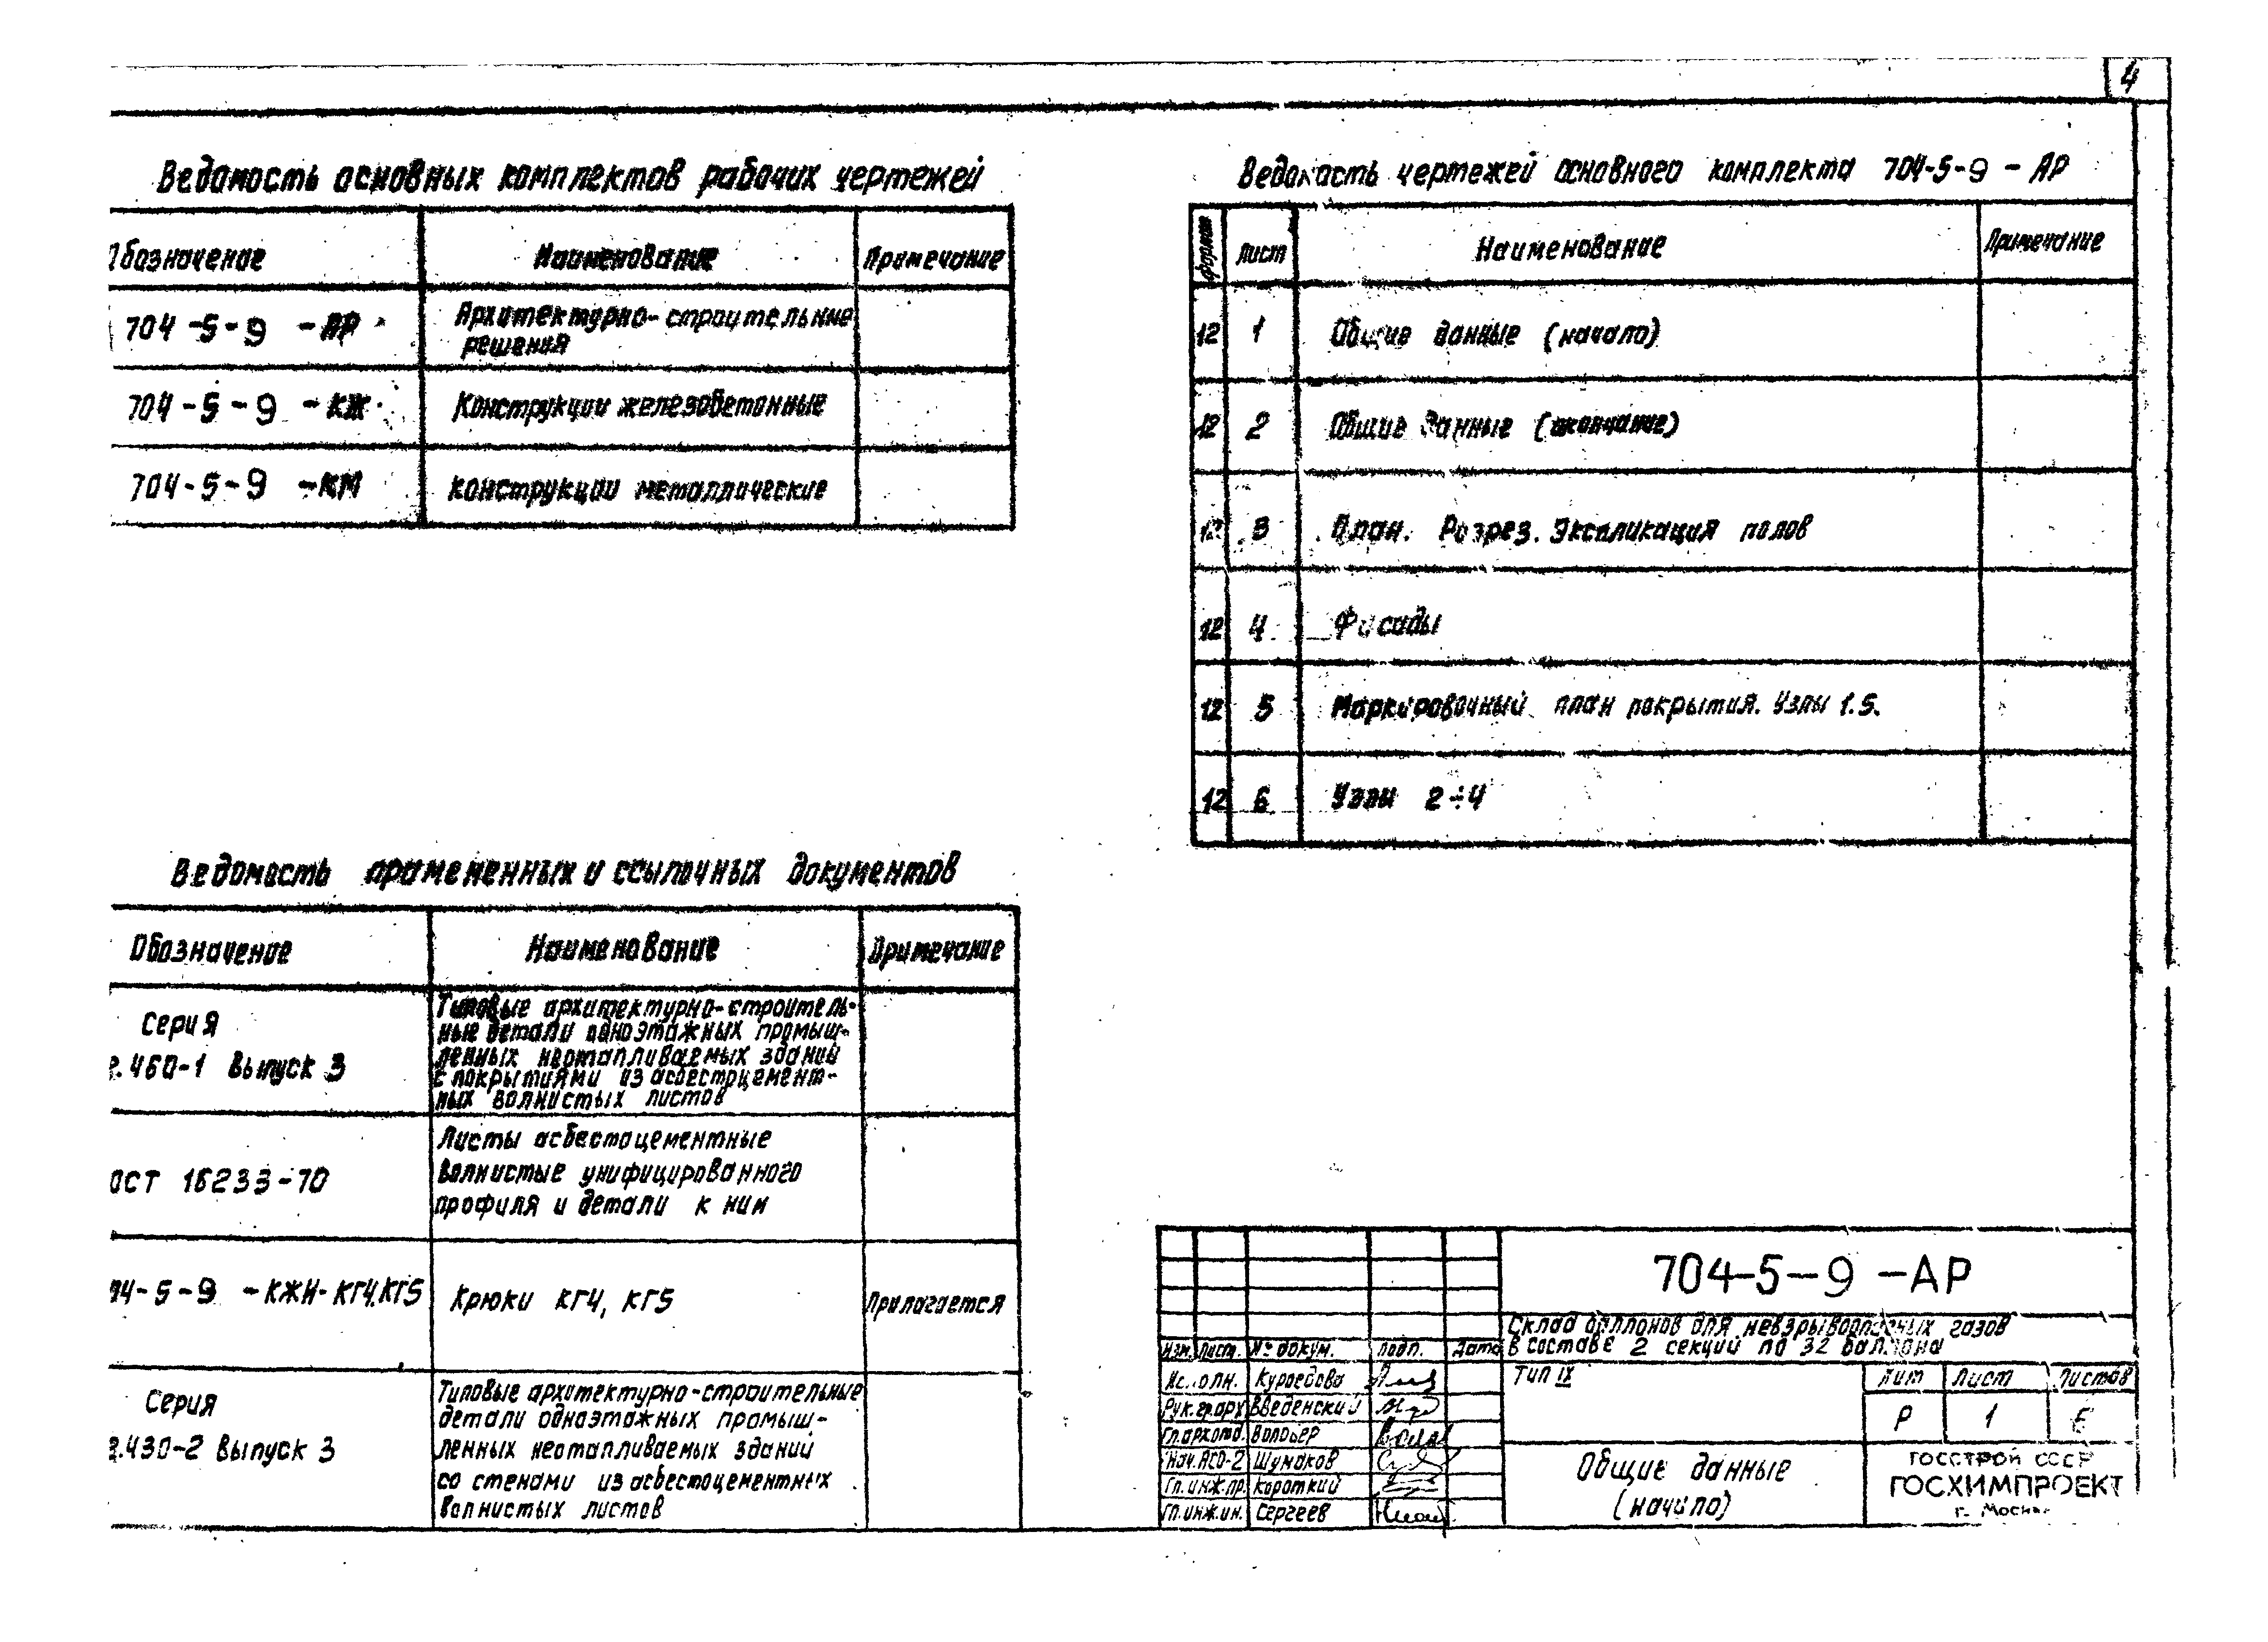 4
Ведомость основных комплектов рабочих чертежей
Обозначение Наименование Примечание
704-5-9 -АР Архитектурно-строительные
решения
704-5-9 -КЖ Конструкции железобетонные
704-5-9 -КМ Конструкции металлические
Ведомость чертежей основного комплекта 704-5-9 - АР
Формат Лист Наименование Примечание
12 1 Общие данные (начало)
12 2 Общие данные (окончание)
12 3 План. Разрез. Экспликация полов
12 4 Фасады
12 5 Маркировочный план покрытия. Узлы 1.5.
12 6 Узлы 2÷4
Ведомость примененных и ссылочных документов
Обозначение Наименование Примечание
Серия
2.460-1 Выпуск 3
Типовые архитектурно-строитель-
ные детали одноэтажных промыш-
ленных неотапливаемых зданий
с покрытиями из асбестоцемент-
ных волнистых листов
ОСТ 16233-70
Листы асбестоцементные
волнистые унифицированного
профиля и детали к ним
04-5-9 -КЖИ-КГ4,КГ5 Крюки КГ4, КГ5 Прилагается
Серия
2.430-2 Выпуск 3
Типовые архитектурно-строительные
детали одноэтажных промыш-
ленных неотапливаемых зданий
со стенами из асбестоцементных
волнистых листов
704-5-9 -АР
Склад баллонов для невзрывоопасных газов
в составе 2 секций по 32 баллона
Изм. Лист. № докум. Подп. Дата
Исполн. Куроедова
Рук.гр.арх Введенский
Гл.арх.отд.
Нач.АСО-2 Шумаков
Гл.инж.пр. Короткий
Гл.инж.ин. Сергеев
Тип IX
Лит Лист Листов
Р 1 6
Общие данные
(начало)
ГОССТРОЙ СССР
ГОСХИМПРОЕКТ
г. Москва